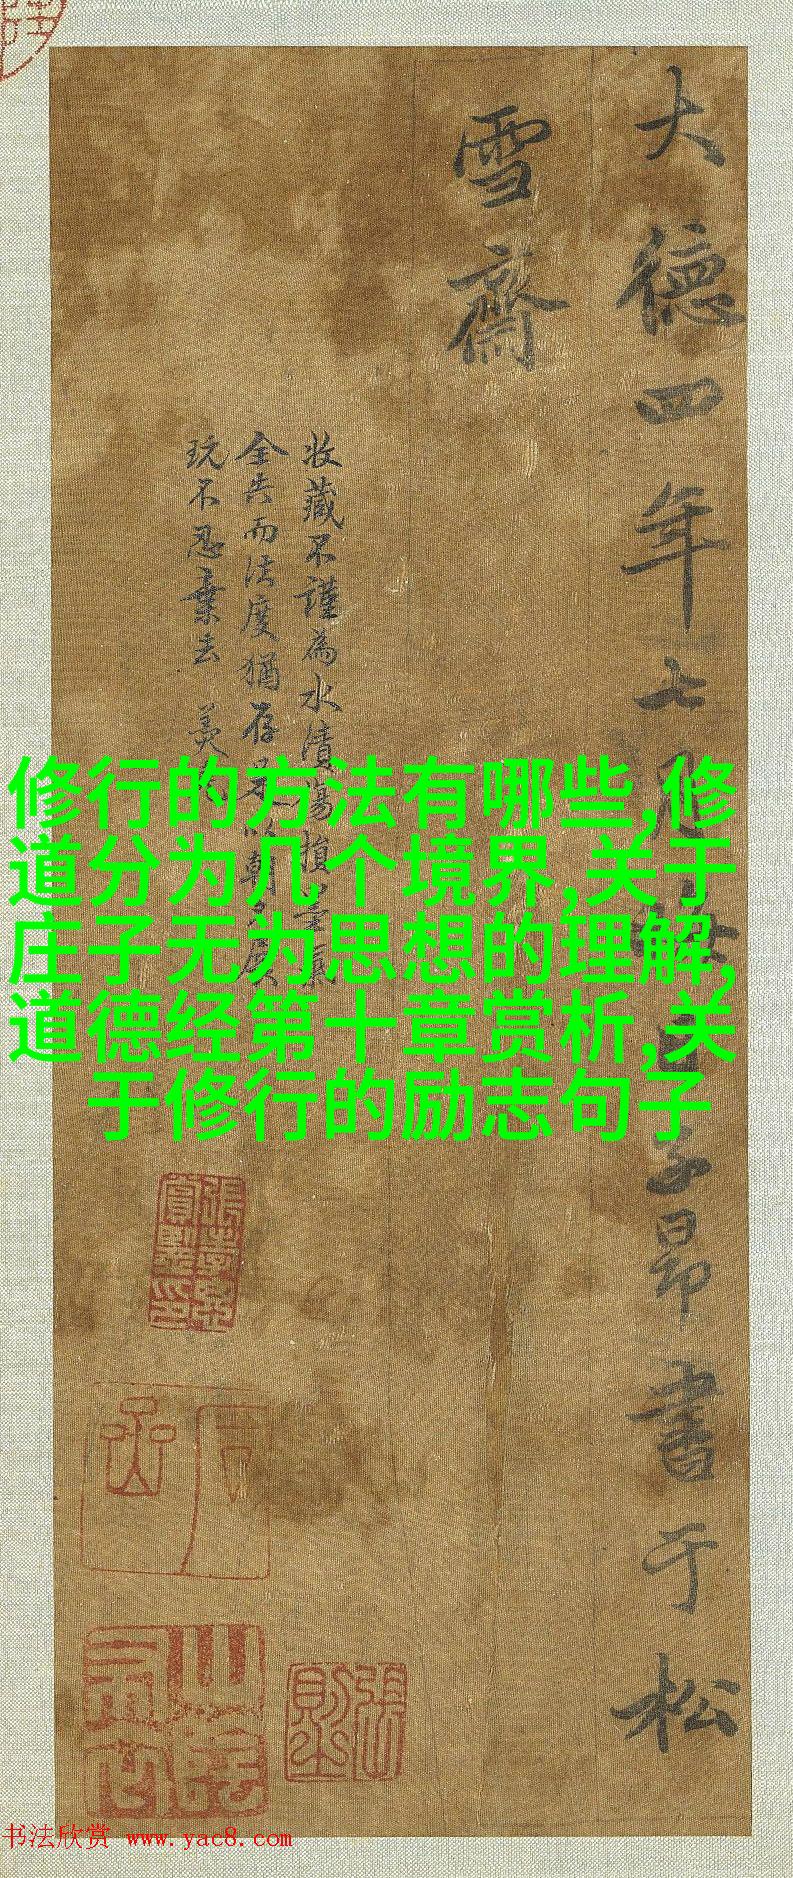 大德四年七月日子昂書于松
雪齋
收藏不謹為水漬傷損墨氣
全失而法度猶存是以朝夕展
玩不忍棄去
修行的方法有哪些,修
道分为几个境界,关于
庄子无为思想的理解,
道德经第十章赏析,关
于修行的励志句子
书法欣赏 www.yac8.com